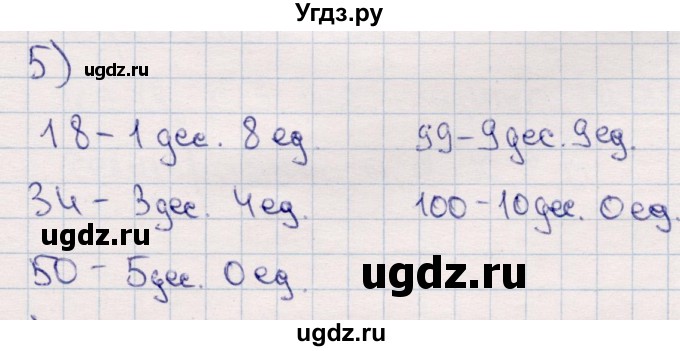 Угдз.ру
5) ugdz.ru
18 - 1 дес. 8 ед.
99 - 9 дес. 9 ед.
34 - 3 дес. 4 ед.
100 - 10 дес. 0 ед.
ugdz.ru
50 - 5 дес. 0 ед.
ugdz.ru
ugdz.ru